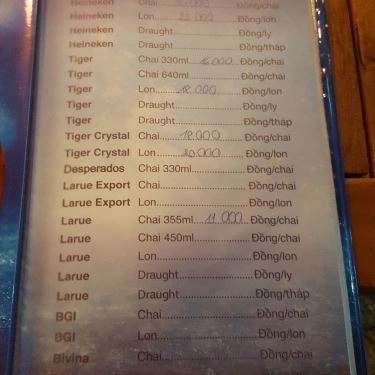 Heineken Chai Đồng/chai
Heineken Lon..........Đồng/lon
Heineken Draught..........Đồng/ly
Heineken Draught..........Đồng/tháp
Tiger Chai 330ml...16.000...Đồng/chai
Tiger Chai 640ml..........Đồng/chai
Tiger Lon....18.000....Đồng/lon
Tiger Draught..........Đồng/ly
Tiger Draught..........Đồng/tháp
Tiger Crystal Chai....18.000....Đồng/chai
Tiger Crystal Lon....20.000....Đồng/lon
Desperados Chai 330ml..........Đồng/chai
Larue Export Chai..........Đồng/chai
Larue Export Lon..........Đồng/lon
Larue Chai 355ml...11.000...Đồng/chai
Larue Chai 450ml..........Đồng/chai
Larue Lon..........Đồng/lon
Larue Draught..........Đồng/ly
Larue Draught..........Đồng/tháp
BGI Chai..........Đồng/chai
BGI Lon..........Đồng/lon
Bivina Chai..........Đồng/chai
Đồng/lon